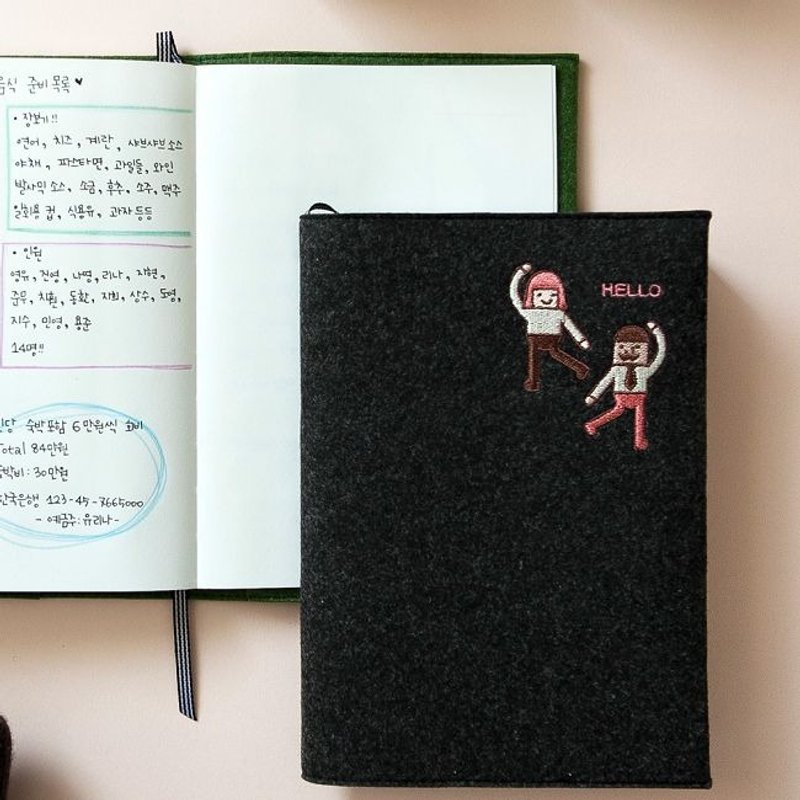 음식 준비 목록 ♥
• 장보기!!
연어, 치즈, 계란, 샤브샤브 소스
야채, 파스타면, 과일들, 와인
발사믹 소스, 소금, 후추, 소주, 맥주
일회용 컵, 식용유, 과자 등등
• 인원
영유, 진영, 나영, 리나, 지현,
준우, 치훤, 동환, 지희, 상수, 도영,
지수, 민영, 용준
14명!!
인당 숙박포함 6만원씩 회비
Total 84만원
숙박비 : 30만원
한국은행 123-45-7665000
- 예금주 : 유리나 -
HELLO